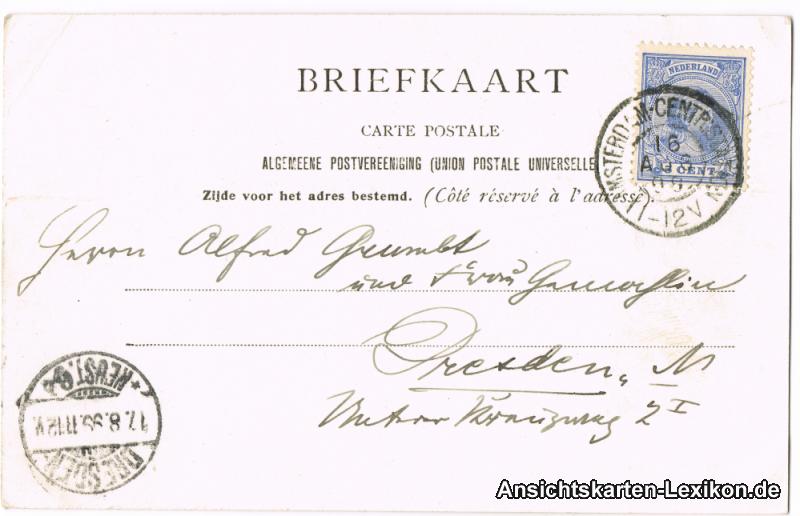 BRIEFKAART
CARTE POSTALE
ALGEMEENE POSTVEREENIGING (UNION POSTALE UNIVERSELLE
Zijde voor het adres bestemd. (Côté réservé à l'adresse).
NEDERLAND
CENT
AMSTERDAM-CENTR. ST
16
AUG
11-12V
Herrn Alfred Grumbt
und Frau Gemahlin
Dresden, N
Unterer Kreuzweg 2 I
DRESDEN
NEUST.
17.8.99.11-12V.
Ansichtskarten-Lexikon.de